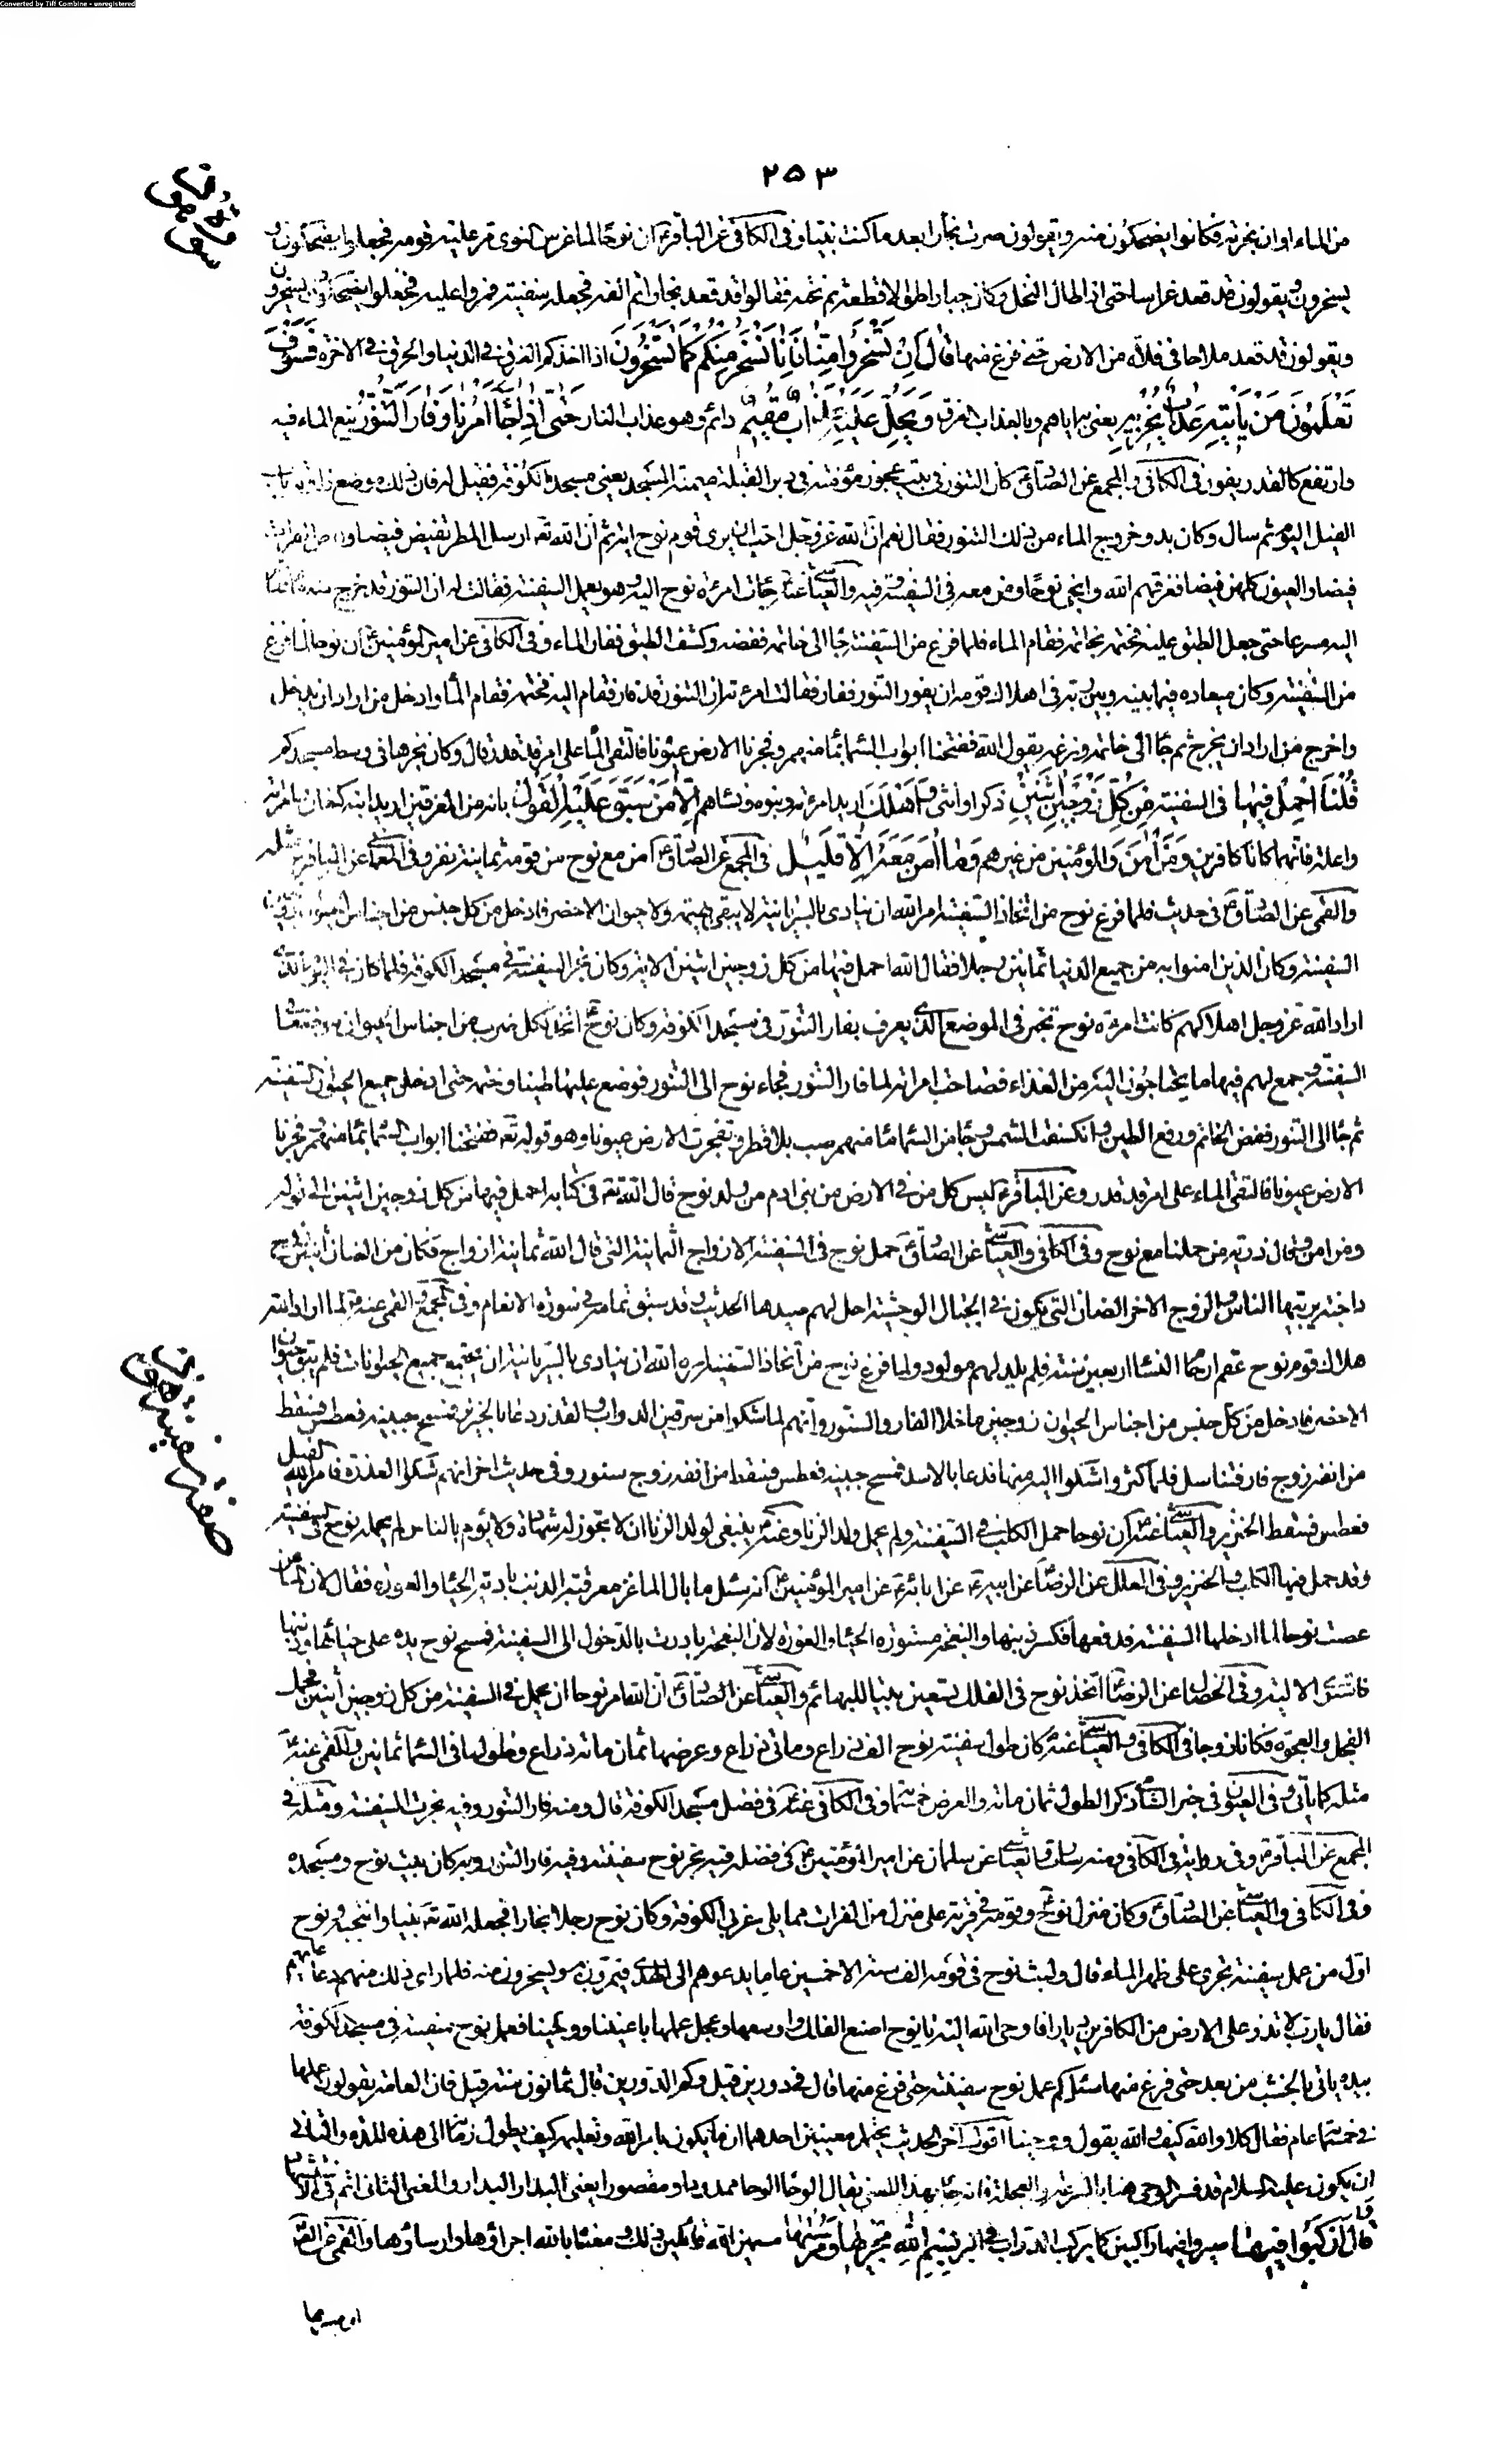 Converted by Tiff Combine - unregistered
٢٥٣
سورة هود
من الماء اوان عزته فكانوا يضحكون منه ويقولون صرت نجارا بعد ما كنت نبيا وفى الكافى عن الباقرع ان نوحا لما غرس النوى مر عليه قومه فجعلوا يضحكون و
يسخرون ويقولون قد قعد غراسا حتى اذا طال النخل وكان جبارا طوالا قطعه ثم نحته فقالوا قد قعد نجارا ثم الفه فجعله سفينة فمروا عليه فجعلوا يضحكون ويسخرون
ويقولون قد قعد ملاحا فى فلاة من الارض حتى فرغ منها قال ان تسخروا منا فانا نسخر منكم كما تسخرون اذا اخذكم الغرق فى الدنيا والحرق فى الاخرة فسوف
تعلمون من ياتيه عذاب يخزيه يعنى به اياهم وبالعذاب الغرق ويحل عليه عذاب مقيم دائم وهو عذاب النار حتى اذا جاء امرنا وفار التنور نبع الماء فيه
وارتفع كالقدر يفور فى الكافى والمجمع عن الصادقع كان التنور فى بيت عجوز مؤمنة فى دبر القبلة ميمنة المسجد يعنى مسجد الكوفة فقيل له فان ذلك موضع زاوية باب
الفيل اليوم ثم سال وكان بدو خروج الماء من ذلك التنور فقال نعم ان الله عزوجل احب ان يرى قوم نوح اية ثم ان الله تع ارسل المطر يفيض فيضا و
فيضا والعيون كلهن فيضا فغرقهم الله وانجى نوحا ومن معه فى السفينة وفيه والعياشى عنهع جائت امرئة نوح اليه وهو يعمل السفينة فقالت له ان التنور قد خرج منه ماء فقام
اليه مسرعا حتى جعل الطبق عليه فختمه بخاتمه فقام الماء فلما فرغ من السفينة جاء الى خاتمه ففضه وكشف الطبق ففار الماء وفى الكافى عن امير المؤمنينع ان نوحا لما فرغ
من السفينة وكان ميعاده فيما بينه وبين ربه فى اهلاك قومه ان يفور التنور ففار فقالت امرئته ان التنور قد فار فقام اليه فختمه فقام الماء وادخل من اراد ان يدخل
واخرج من اراد ان يخرج ثم جاء الى خاتمه ونزعه يقول الله ففتحنا ابواب السماء بماء منهمر وفجرنا الارض عيونا فالتقى الماء على امر قد قدر قال وكان نجرها فى وسط مسجدكم
قلنا احمل فيها فى السفينة من كل زوجين اثنين ذكرا وانثى واهلك اريد امرئته وبنوه ونسائهم الا من سبق عليه القول بانه من المغرقين اريد ابنه كنعان وامرئته
واعلة فانهما كانا كافرين ومن امن والمؤمنين من غيرهم وما امن معه الا قليل فى المجمع عن الصادقع امن مع نوح من قومه ثمانية نفر وفى المعانى عن الباقرع مثله
والقمى عن الصادقع فى حديث فلما فرغ نوح من اتخاذ السفينة امره الله ان ينادى بالسريانية لا يبقى بهيمة ولا حيوان الا حضر فادخل من كل جنس من اجناس الحيوان زوجين
السفينة وكان الذين امنوا به من جميع الدنيا ثمانين رجلا فقال الله احمل فيها من كل زوجين اثنين الاية وكان نجر السفينة فى مسجد الكوفة فلما كان فى اليوم الذى
اراد الله عزوجل اهلاكهم كانت امرئة نوح تخبز فى الموضع الذى يعرف بفار التنور فى مسجد الكوفة وكان نوحع اتخذ لكل ضرب من اجناس الحيوان موضعا فى
السفينة وجمع لهم فيها ما يحتاجون اليه من الغذاء فصاحت امرئته لما فار التنور فجاء نوح الى التنور فوضع عليها طينا وختمه حتى ادخل جميع الحيوان السفينة
ثم جاء الى التنور ففض الخاتم ورفع الطين وانكسفت الشمس وجاء من السماء ماء منهمر صب بلا قطر وتفجرت الارض عيونا وهو قوله تع ففتحنا ابواب السماء بماء منهمر وفجرنا
الارض عيونا فالتقى الماء على امر قد قدر وعن الباقرع ليس كل من فى الارض من بنى ادم من ولد نوح قال الله تع فى كتابه احمل فيها من كل زوجين اثنين الى قوله
ومن امن وقال ذرية من حملنا مع نوح وفى الكافى والعياشى عن الصادقع حمل نوح فى السفينة الازواج الثمانية التى قال الله ثمانية ازواج فكان من الضان اثنين زوج
داجنة يربيها الناس والزوج الاخر الضان التى تكون فى الجبال الوحشية احل لهم صيدها الحديث وقد سبق تمامه فى سورة الانعام وفى المجمع والقمى عنهع لما اراد الله
صفة سفينة نوح
هلاك قوم نوح عقم ارحام النساء اربعين سنة فلم يلد لهم مولود ولما فرغ نوح من اتخاذ السفينة امره الله ان ينادى بالسريانية ان يجتمع جميع الحيوانات فلم يبق حيوان
الا حضر فادخل من كل جنس من اجناس الحيوان زوجين ما خلا الفار والسنور وانهم لما شكوا من سرقين الدواب والقذر دعا بالخنزير فمسح جبينه فعطس فسقط
من انفه زوج فار فتناسل فلما كثروا شكوا اليه منها فدعا بالاسد فمسح جبينه فعطس فسقط من انفه زوج سنور وفى حديث اخر انهم شكوا العذرة فامر الله الفيل
فعطس فسقط الخنزير والعياشى عنهع ان نوحا حمل الكلب فى السفينة ولم يحمل ولد الزنا وعنهع ينبغى لولد الزنا ان لا تجوز له شهادة ولا يؤم بالناس لم يحمله نوح فى السفينة
وقد حمل فيها الكلب والخنزير وفى العلل عن الرضاع عن ابيهع عن ابائهع عن امير المؤمنينع انه سئل ما بال الماعز معرقبة الذنب بادية الحياء والعورة فقال لان الماعز
عصت نوحا لما ادخلها السفينة فدفعها فكسر ذنبها والنعجة مستورة الحياء والعورة لان النعجة بادرت بالدخول الى السفينة فمسح نوح يده على حيائها وذنبها
فاستترت الالية وفى الخصال عن الرضاع اتخذ نوح فى الفلك تسعين بيتا للبهائم والعياشى عن الصادقع ان الله امر نوحا ان يحمل فى السفينة من كل زوجين اثنين فحمل
الفحل والعجوة فكانا زوجا فى الكافى والعياشى عنهع كان طول سفينة نوح الف ذراع ومائتى ذراع وعرضها ثمان مائة ذراع وطولها فى السماء ثمانين والقمى عنهع
مثله كما ياتى وفى العيون فى خبر الشامى ذكر الطول ثمان مائة والعرض خمسمائة وفى الكافى عنهع فى فضل مسجد الكوفة قال ومنه فار التنور وفيه نجرت السفينة ومثله فى
المجمع عن الباقرع وفى رواية فى الكافى ومنه سارت والعياشى عن سلمان عن امير المؤمنينع فى فضله فيه نجر نوح سفينته وفيه فار التنور وبه كان بيت نوح ومسجده
وفى الكافى والعياشى عن الصادقع وكان منزل نوحع وقومه فى قرية على منزل من الفرات مما يلى غربى الكوفة وكان نوح رجلا نجارا فجعله الله تع نبيا وانتجبه ونوح
اول من عمل سفينة تجرى على ظهر الماء قال ولبث نوح فى قومه الف سنة الا خمسين عاما يدعوهم الى الهدى فيمرون به ويسخرون منه فلما راى ذلك منهم دعا عليهم
فقال يا رب لا تذر على الارض من الكافرين ديارا فاوحى الله اليه يا نوح اصنع الفلك واوسعها وعجل عملها باعيننا ووحينا فعمل نوح سفينة فى مسجد الكوفة
بيده ياتى بالخشب من بعد حتى فرغ منها سئل كم عمل نوح سفينته حتى فرغ منها قال فى دورين قيل وكم الدورين قال ثمانون سنة قيل فان العامة يقولون عملها
فى خمسمائة عام فقال كلا والله كيف والله يقول ووحينا اقول اخر الحديث يحتمل معنيين احدهما ان ما يكون بامر الله وتعليمه كيف يطول زمانه الى هذه المدة والثانى
ان يكون عليه السلام قد فسر الوحى هنا بالسرعة والعجلة فانه جاء بهذا المعنى يقال الوحا الوحا ممدودا ومقصورا يعنى البدار البدار والمعنى الثانى اتم فى الاستشهاد
وقال اركبوا فيها صيروا فيها راكبين كما يركب الدواب فى البر بسم الله مجريها ومرسيها مسمين الله قائلين ذلك ومعناه بالله اجراؤها وارساؤها والقمى عن الصادقع